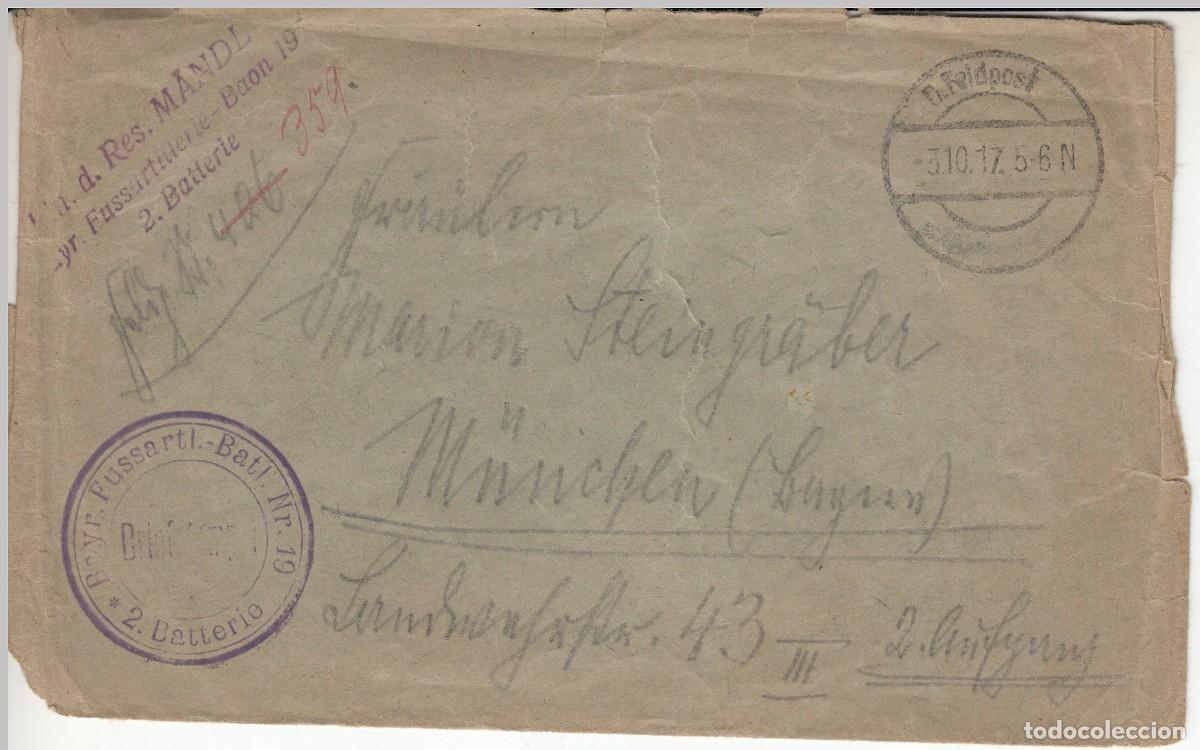 d. Res. MANDL
Fussartillerie-Baon 19
2. Batterie
359.
D. Feldpost
-3.10.17. 5-6 N
Fräulein
Marion Steingräber
München (Bayern)
Landwehrstr. 43 III 2. Aufgang
Bayr. Fussartl.-Batl. Nr. 19
* 2. Batterie
todocoleccion